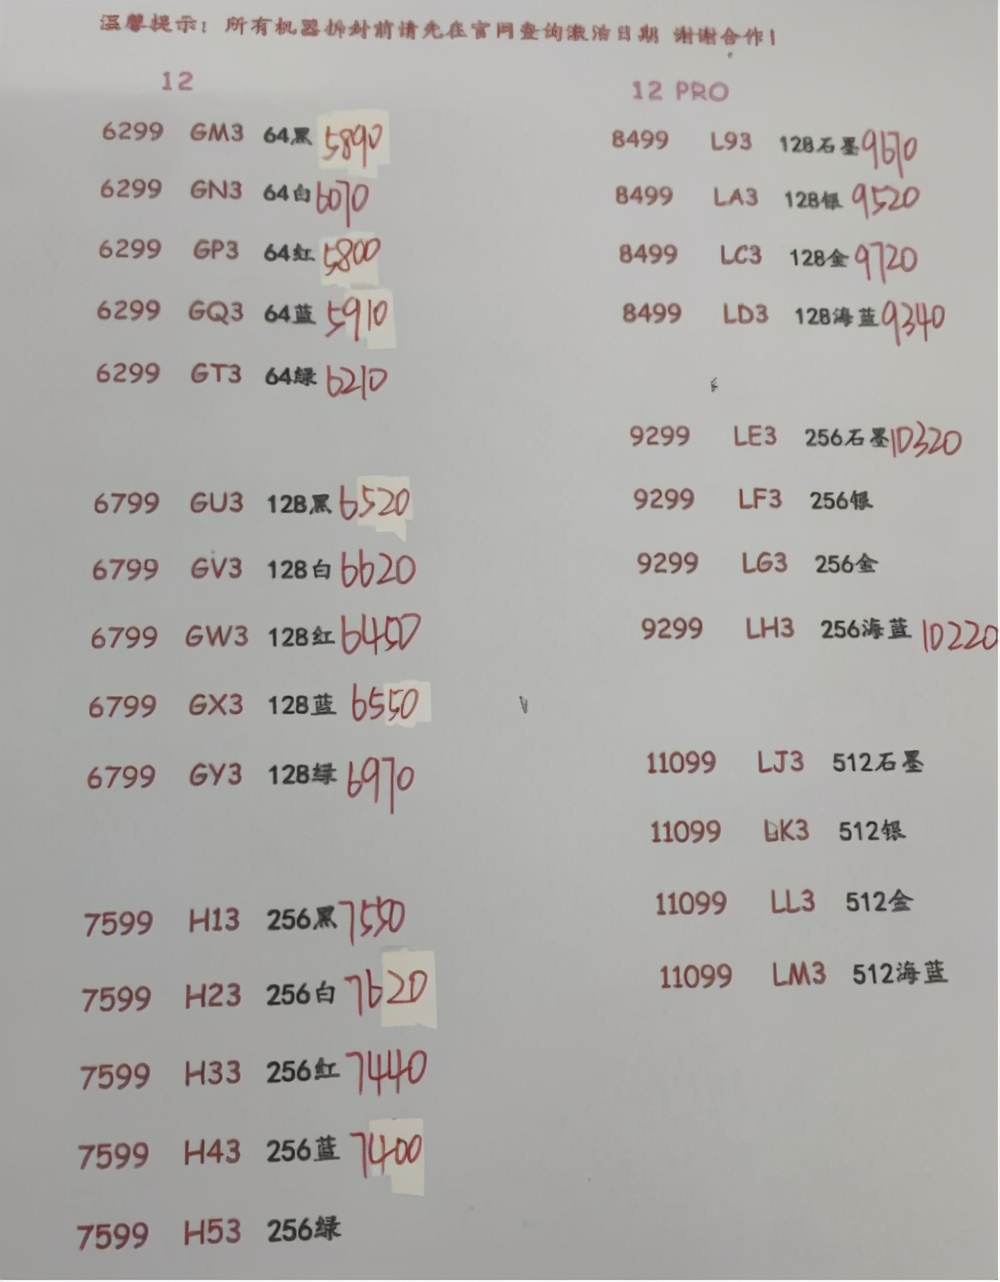 温馨提示：所有机器拆封前请先在官网查询激活日期 谢谢合作！
12
6299 GM3 64黑 5890
6299 GN3 64白 6070
6299 GP3 64红 5800
6299 GQ3 64蓝 5910
6299 GT3 64绿 6210
6799 GU3 128黑 6520
6799 GV3 128白 6620
6799 GW3 128红 6450
6799 GX3 128蓝 6550
6799 GY3 128绿 6970
7599 H13 256黑 7550
7599 H23 256白 7620
7599 H33 256红 7440
7599 H43 256蓝 7400
7599 H53 256绿
12 PRO
8499 L93 128石墨 9670
8499 LA3 128银 9520
8499 LC3 128金 9720
8499 LD3 128海蓝 9340
9299 LE3 256石墨 10320
9299 LF3 256银
9299 LG3 256金
9299 LH3 256海蓝 10220
11099 LJ3 512石墨
11099 LK3 512银
11099 LL3 512金
11099 LM3 512海蓝